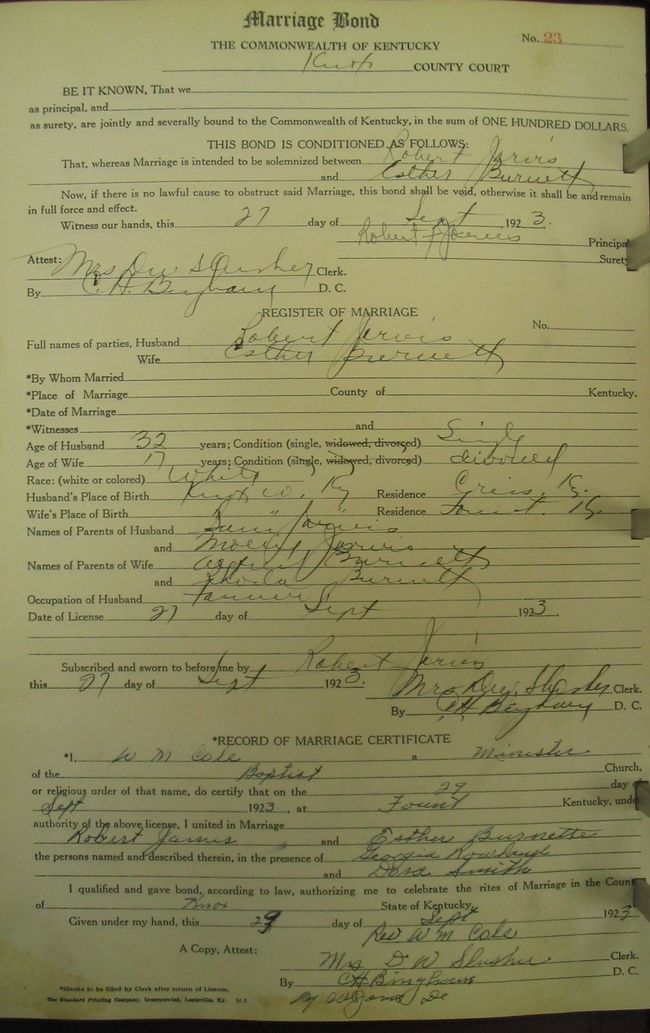 Marriage Bond
No. 23
THE COMMONWEALTH OF KENTUCKY
Knox COUNTY COURT
BE IT KNOWN, That we
as principal, and
as surety, are jointly and severally bound to the Commonwealth of Kentucky, in the sum of ONE HUNDRED DOLLARS.
THIS BOND IS CONDITIONED AS FOLLOWS:
That, whereas Marriage is intended to be solemnized between Robert Jarvis
and Esther Burnett
Now, if there is no lawful cause to obstruct said Marriage, this bond shall be void, otherwise it shall be and remain
in full force and effect.
Witness our hands, this 27 day of Sept 1923.
Robert Jarvis Principal
Surety
Attest: Mrs D W Slusher Clerk.
By C. H. Bingham D. C.
REGISTER OF MARRIAGE
No.
Full names of parties, Husband Robert Jarvis
Wife Esther Burnett
*By Whom Married
*Place of Marriage County of Kentucky.
*Date of Marriage
*Witnesses and
Age of Husband 32 years; Condition (single, widowed, divorced) Single
Age of Wife 17 years; Condition (single, widowed, divorced) divorced
Race: (white or colored) White
Husband's Place of Birth Knox co. Ky Residence Ky.
Wife's Place of Birth " " Residence Fount. Ky.
Names of Parents of Husband Jarvis
and Jarvis
Names of Parents of Wife Burnett
and Burnett
Occupation of Husband farmer
Date of License 27 day of Sept 1923.
Subscribed and sworn to before me by Robert Jarvis
this 27 day of Sept 1923. Mrs D W Slusher Clerk.
By C. H. Bingham D. C.
*RECORD OF MARRIAGE CERTIFICATE
*I, W M Cole a Minister
of the Baptist Church,
or religious order of that name, do certify that on the 29 day of
Sept 1923, at Fount Kentucky, under
authority of the above license, I united in Marriage
Robert Jarvis and Esther Burnette
the persons named and described therein, in the presence of Georgia Rowland
and Dora Smith
I qualified and gave bond, according to law, authorizing me to celebrate the rites of Marriage in the County
of Knox State of Kentucky.
Given under my hand, this 29 day of Sept 1923
Rev W M Cole
A Copy, Attest: Mrs D W Slusher Clerk.
By C H Bingham D. C.
*Blanks to be filled by Clerk after return of License.
The Standard Printing Company, Incorporated, Louisville, Ky.